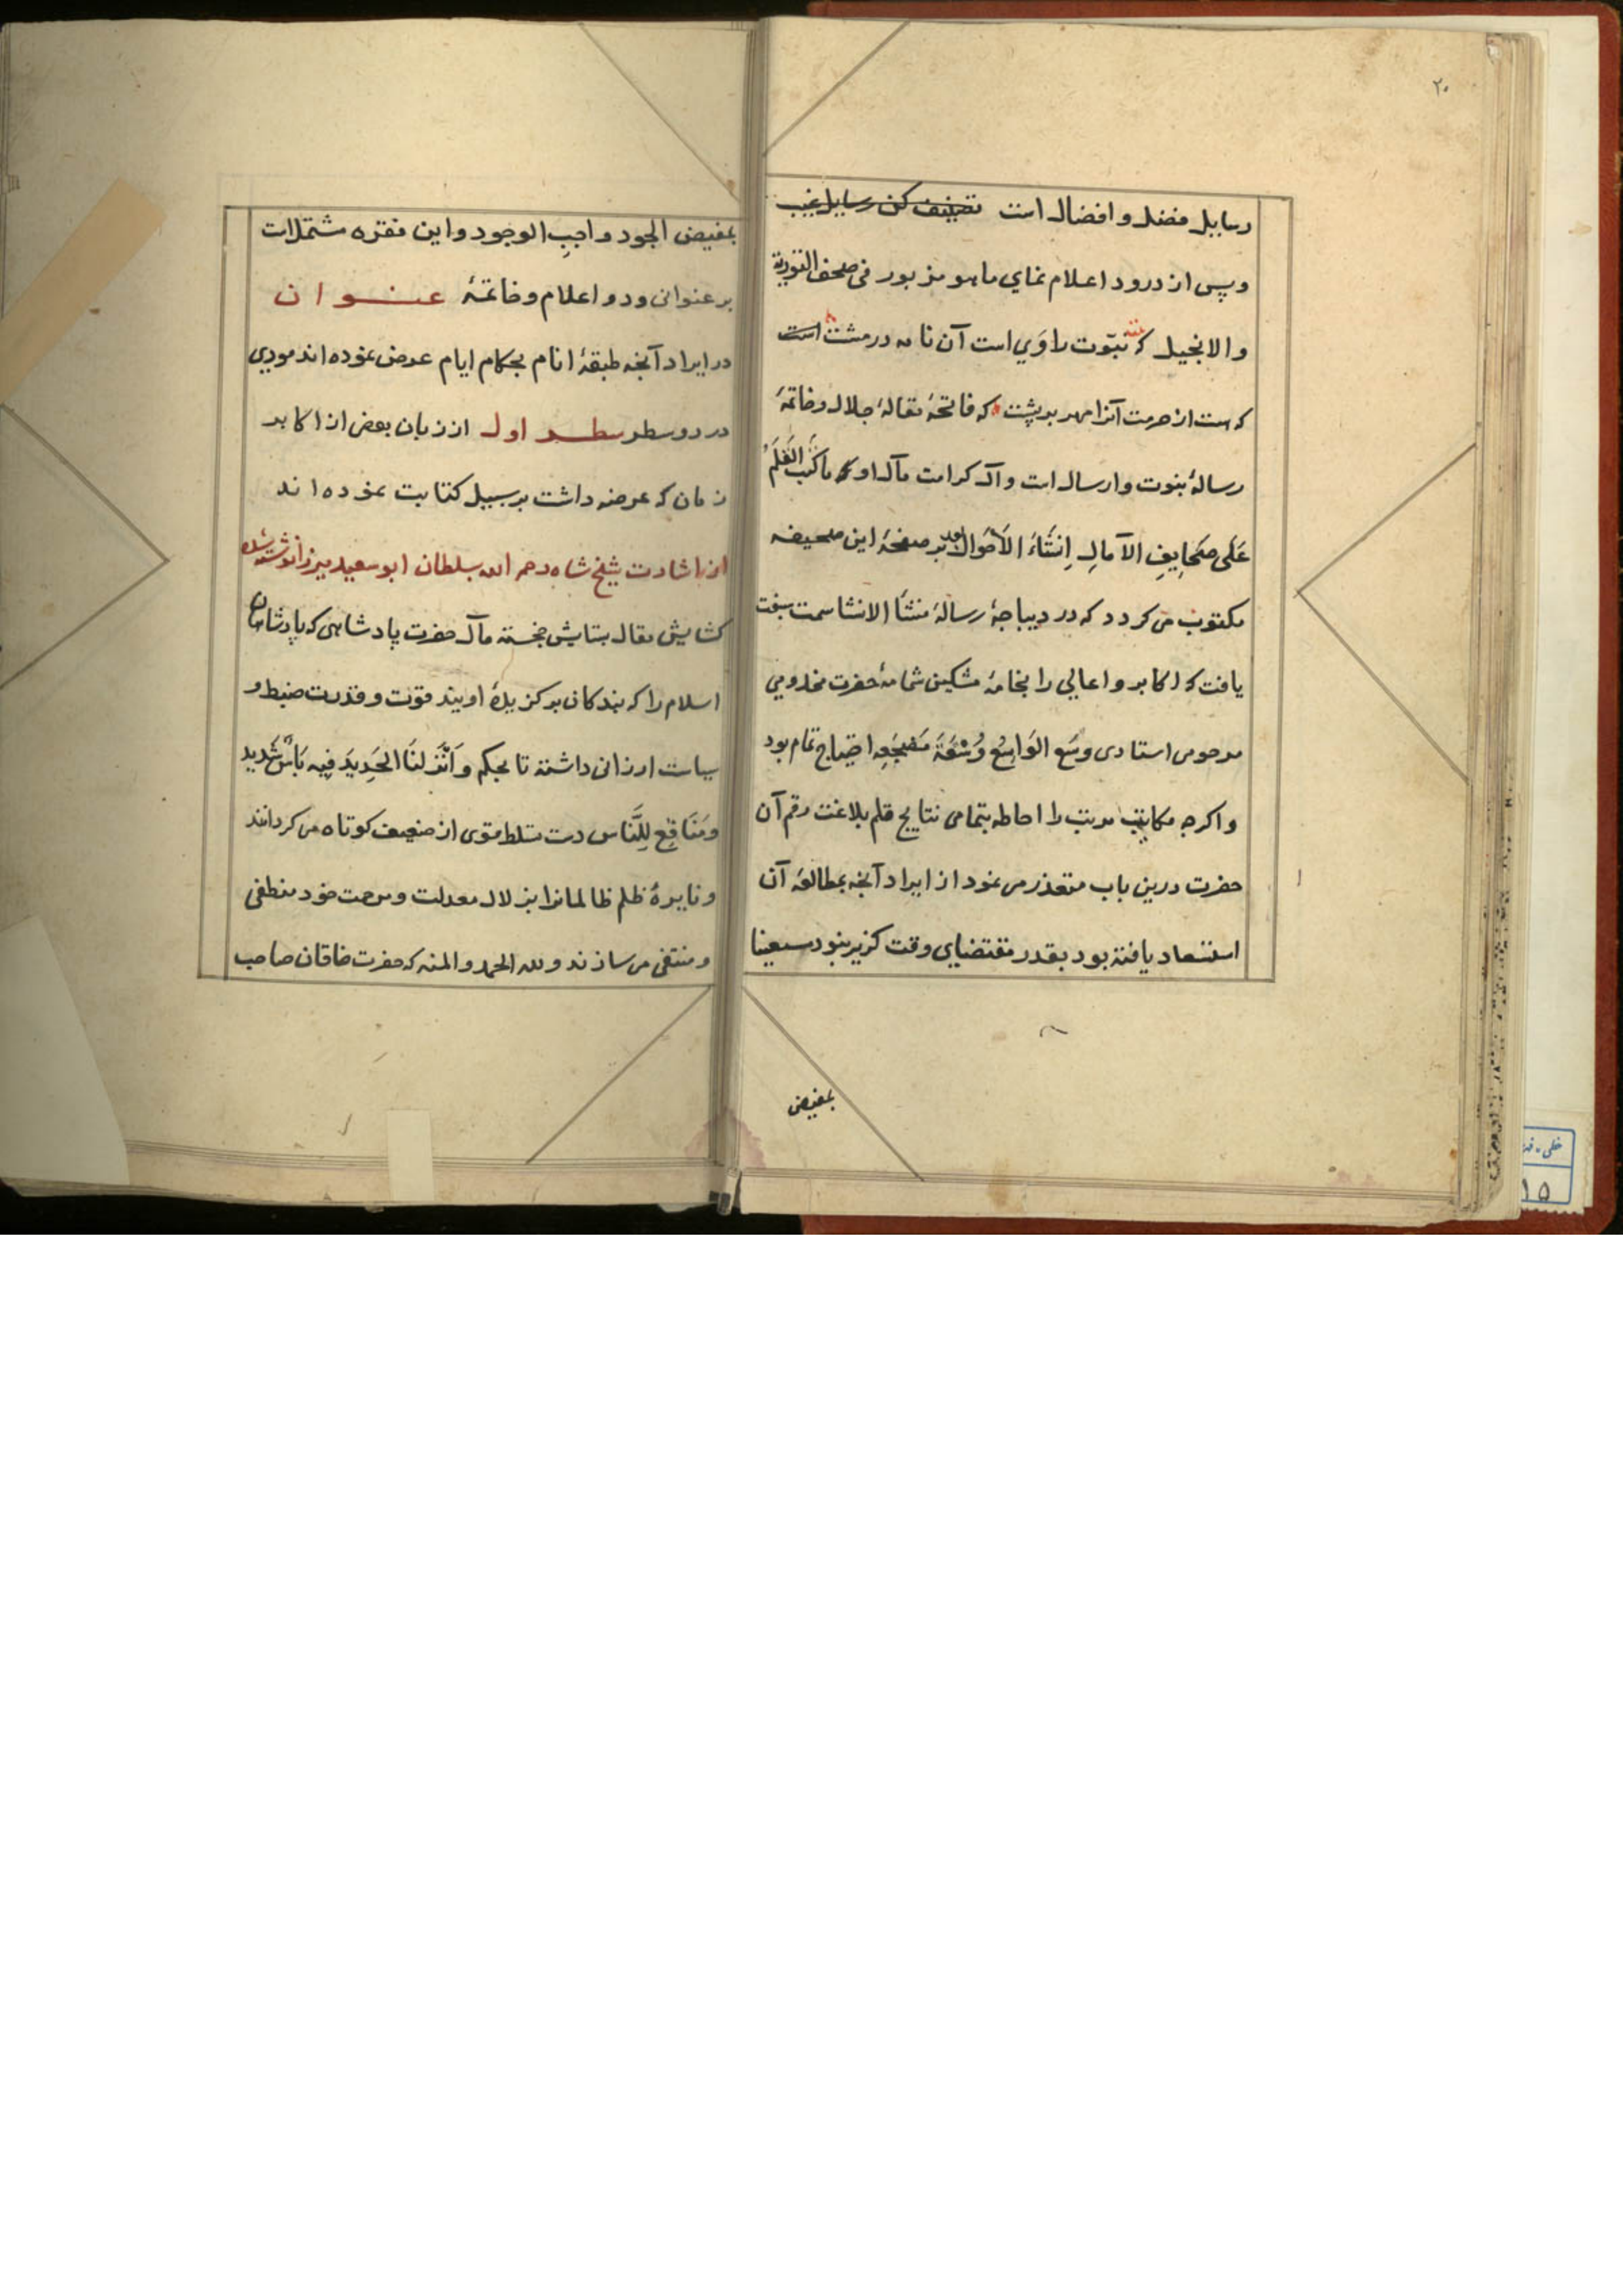 ۲۰
رسایل فضل و افضال است تصنیف کن رسایل غیب
و پس از درود اعلام نمای ما هو مزبور فی صحف التوریة
والانجیل که نبوت را وی است آن نامه در مشت است
که هست از حرمت آنرا مهر بر پشت که فاتحهٔ مقالهٔ جلال و خاتمهٔ
رسالهٔ نبوت و ارسال است و آل کرامت مآل او ما کَتَبَ القَلَمُ
عَلَی صَحَایِفِ الآمالِ اِنشَاءَ الاَحوال بر صفحهٔ این صحیفه
مکتوب می کردد که در دیباجهٔ رسالهٔ منشأ الانشا سمت سبقت
یافت که اکابر و اعالی را بخامهٔ مشکین شمامهٔ حضرت مخدومی
مرحومی استادی وسَع الوَاسِعُ وُسْعَةَ مَضجَعِه احتیاج تمام بود
و اکرچه مکاتیب مرتب را احاطه بتمامی نتایج قلم بلاغت رقم آن
حضرت درین باب متعذر می نمود از ایراد آنچه بمطالعهٔ آن
استسعاد یافته بود بقدر مقتضای وقت کزیر نبود مستعینا
بمفیض
بمفیض الجود واجبِ الوجود و این فقره مشتملات
بر عنوانی و دو اعلام و خاتمهٔ عنوان
در ایراد آنچه طبقهٔ انام بحکام ایام عرض نموده اند مودی
در دو سطر سطر اول از زبان بعض از اکابر
زمان که عرضه داشت بر سبیل کتابت نموده اند
از اشارت شیخ شاه رحمه الله بسلطان ابوسعید میرزا نوشته شده
کشایش مقال بستایش خجسته مآل حضرت پادشاهی که پادشاهان
اسلام را که بندکان برکزیدهٔ اویند قوت و قدرت ضبط و
سیاست ارزانی داشته تا بحکم وَاَنْزَلنَا الحَدِیدَ فِیهِ بَأسٌ شَدِید
وَمَنَافِع لِلنَّاس دست تسلط قوی از ضعیف کوتاه می کردانند
و نایرهٔ ظلم ظالمانرا بزلال معدلت و مرحمت خود منطفی
و منتفی می سازند و لله الحمد و المنه که حضرت خاقان صاحب